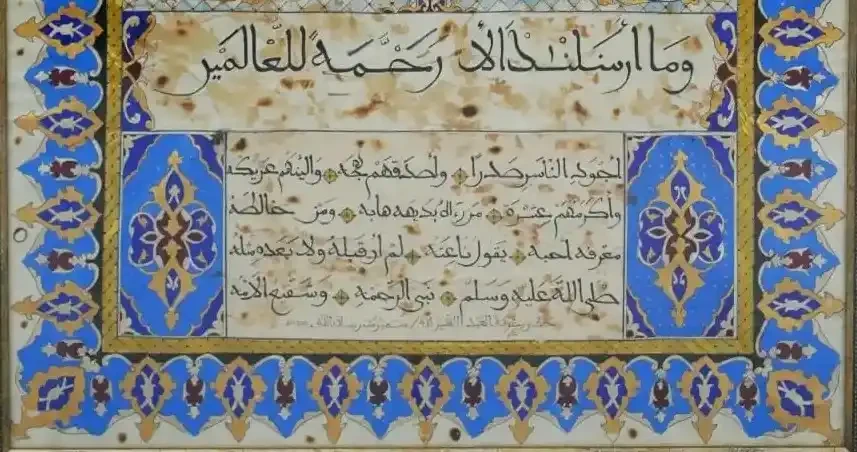 وما أرسلنٰك الا رَحْمَةً للعٰالمين
اجود الناس صدرا وأصدقهم لهجة والينهم عريكة
وأكرمهم عشرة من رءاه بديهه هابه ومن خالطه
معرفه احبه يقول ناعته لم أر قبله ولا بعده مثله
صلى الله عليه وسلم نبى الرحمة وشفيع الامه